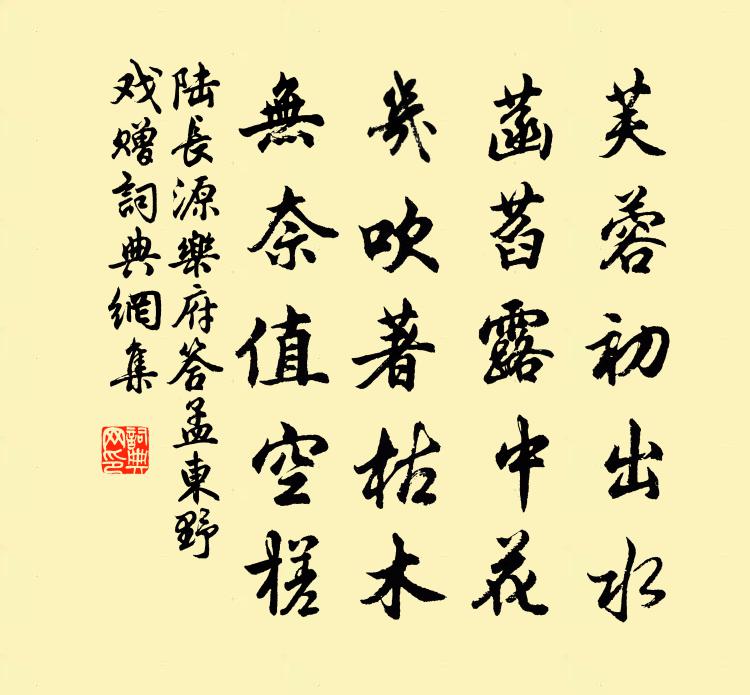 芙蓉初出水
菡萏露中花
風吹著枯木
無奈值空槎
陆長源樂府答孟東野
戏赠詞典網集
詞典
网印